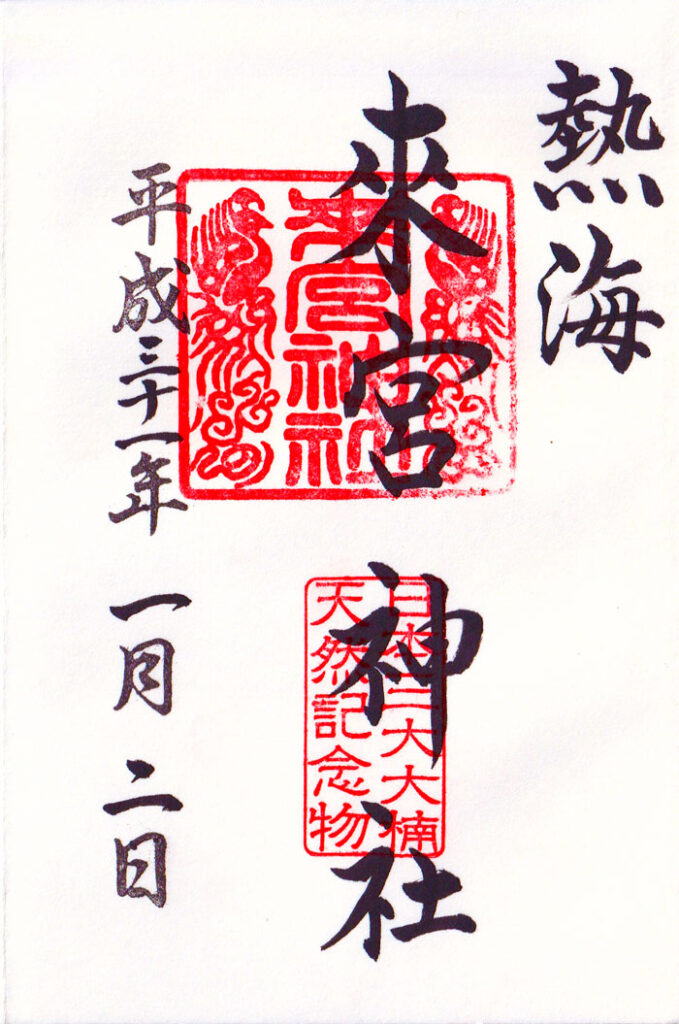 熱海
來宮神社
來宮神社
日本三大大楠
天然記念物
平成三十一年 一月 二日